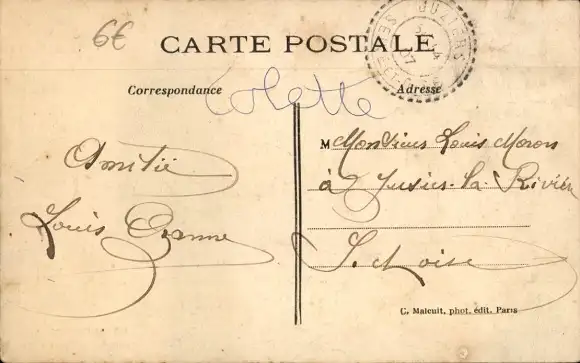 6€
CARTE POSTALE
Correspondance
Colette
Adresse
Amitié
Louis
M Monsieur Louis Moron
à Jusies-la-Rivièr
S. et Oise
C. Malcuit, phot. édit. Paris